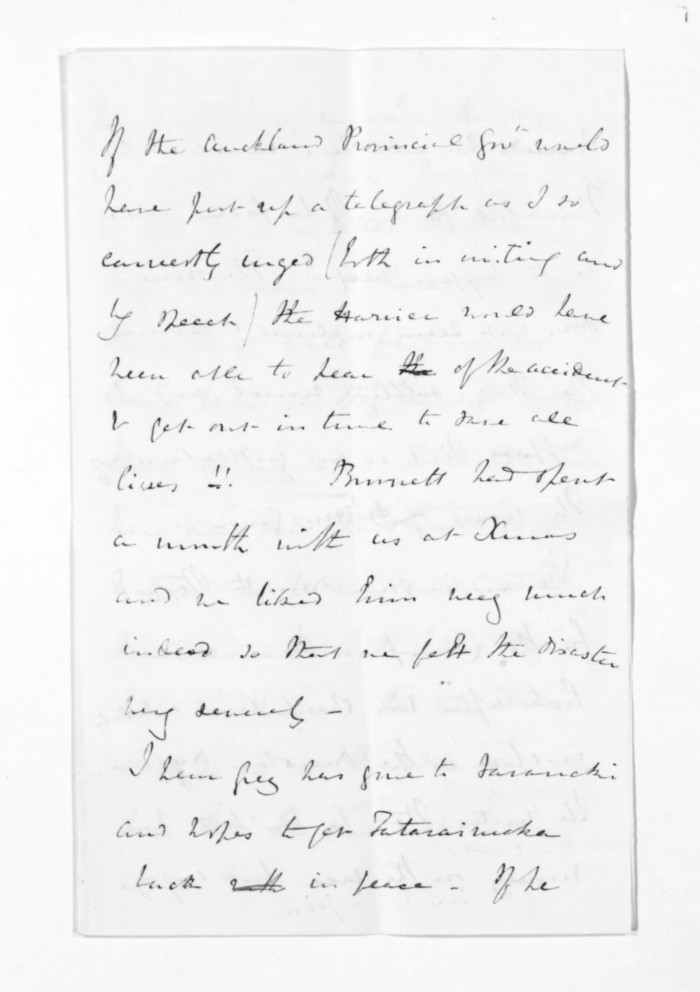 If the Auckland Provincial Govt would
have put up a telegraph as I so
earnestly urged (both in writing and
by speech) the Harrier would have
been able to hear the of the accident
& get out in time to save all
lives !! Burnett had spent
a month with us at Xmas
and we liked him very much
indeed so that we felt the disaster
very severely -
I hear Grey has gone to Taranaki
and hopes to get Tataraimaka
back with in peace - If he